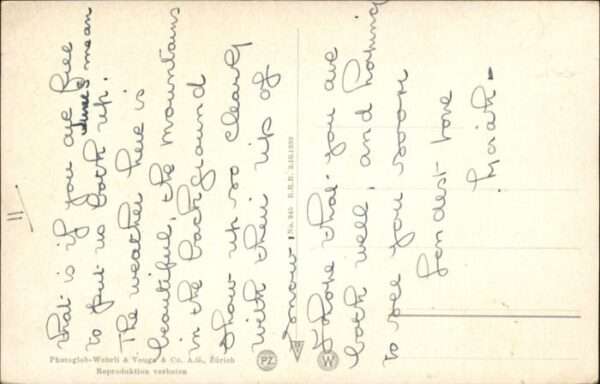 that is if you are free
mean
to put us both up.
The weather here is
beautiful, the mountains
in the background
show up so clearly
with their tips of
snow.
I hope that you are
both well, and hoping
to see you soon
fondest love
Photoglob-Wehrli & Vouga & Co. A.G., Zürich
Reproduktion verboten
PZ
W
11